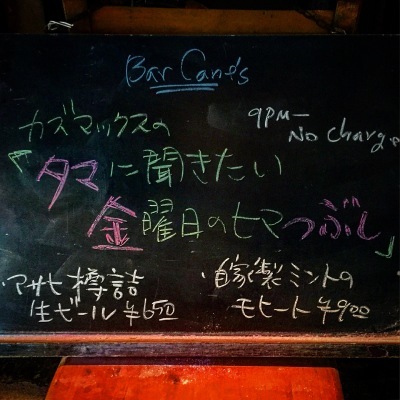 Bar Cane's
9PM-
No Charge
カズマックスの
『タマに聞きたい
金曜日のヒマつぶし』
・アサヒ樽詰
生ビール ¥650
・自家製ミントの
モヒート ¥900